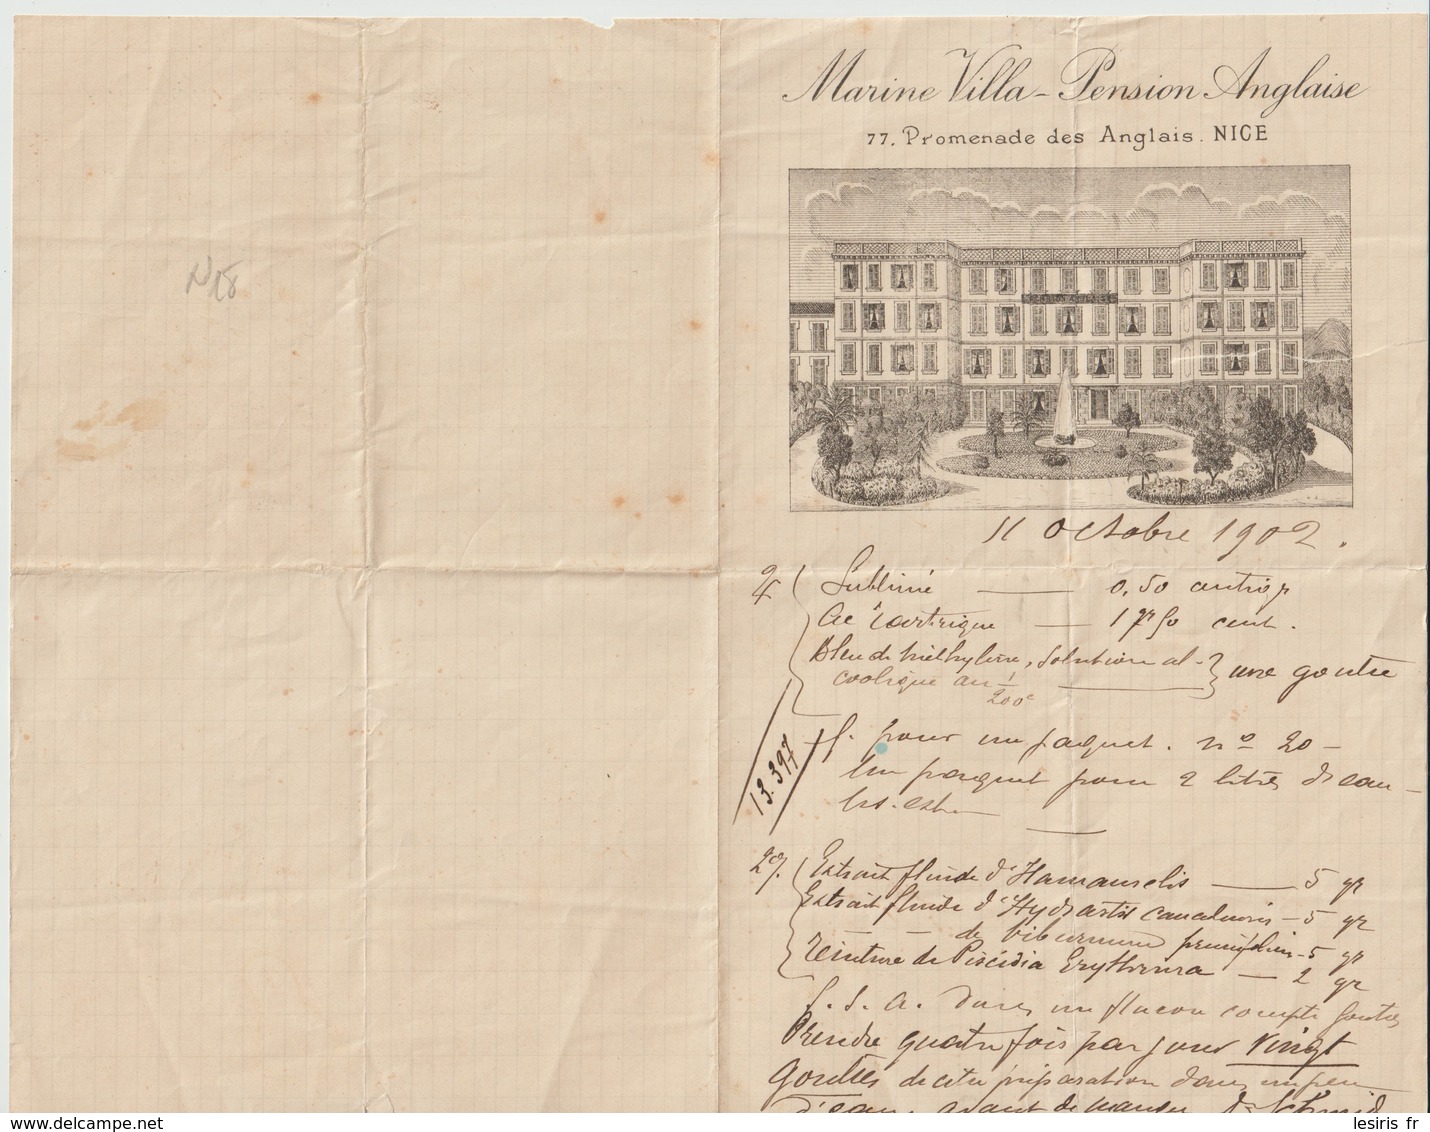 Marine Villa - Pension Anglaise
77. Promenade des Anglais. NICE
N18
11 octobre 1902.
Sublimé — 0,50 centigr
Ac. tartrique — 1 gr 50 cent.
Bleu de Méthylène, solution al-
coolique au 1/200e — une goutte
f. pour un paquet. no 20 -
Un paquet pour 2 litres d'eau -
us. ext.
13.397
2o/. Extrait fluide d'Hamamelis — 5 gr
Extrait fluide d'Hydrastis canadensis - 5 gr
— — de viburnum prunifolium - 5 gr
Teinture de Piscidia Erythrina — 2 gr
f. s. a. dans un flacon compte gouttes
Prendre quatre fois par jour Vingt
gouttes de cette préparation dans un peu
d'eau, avant de manger. Dr Schmid
lesiris fr
www.delcampe.net